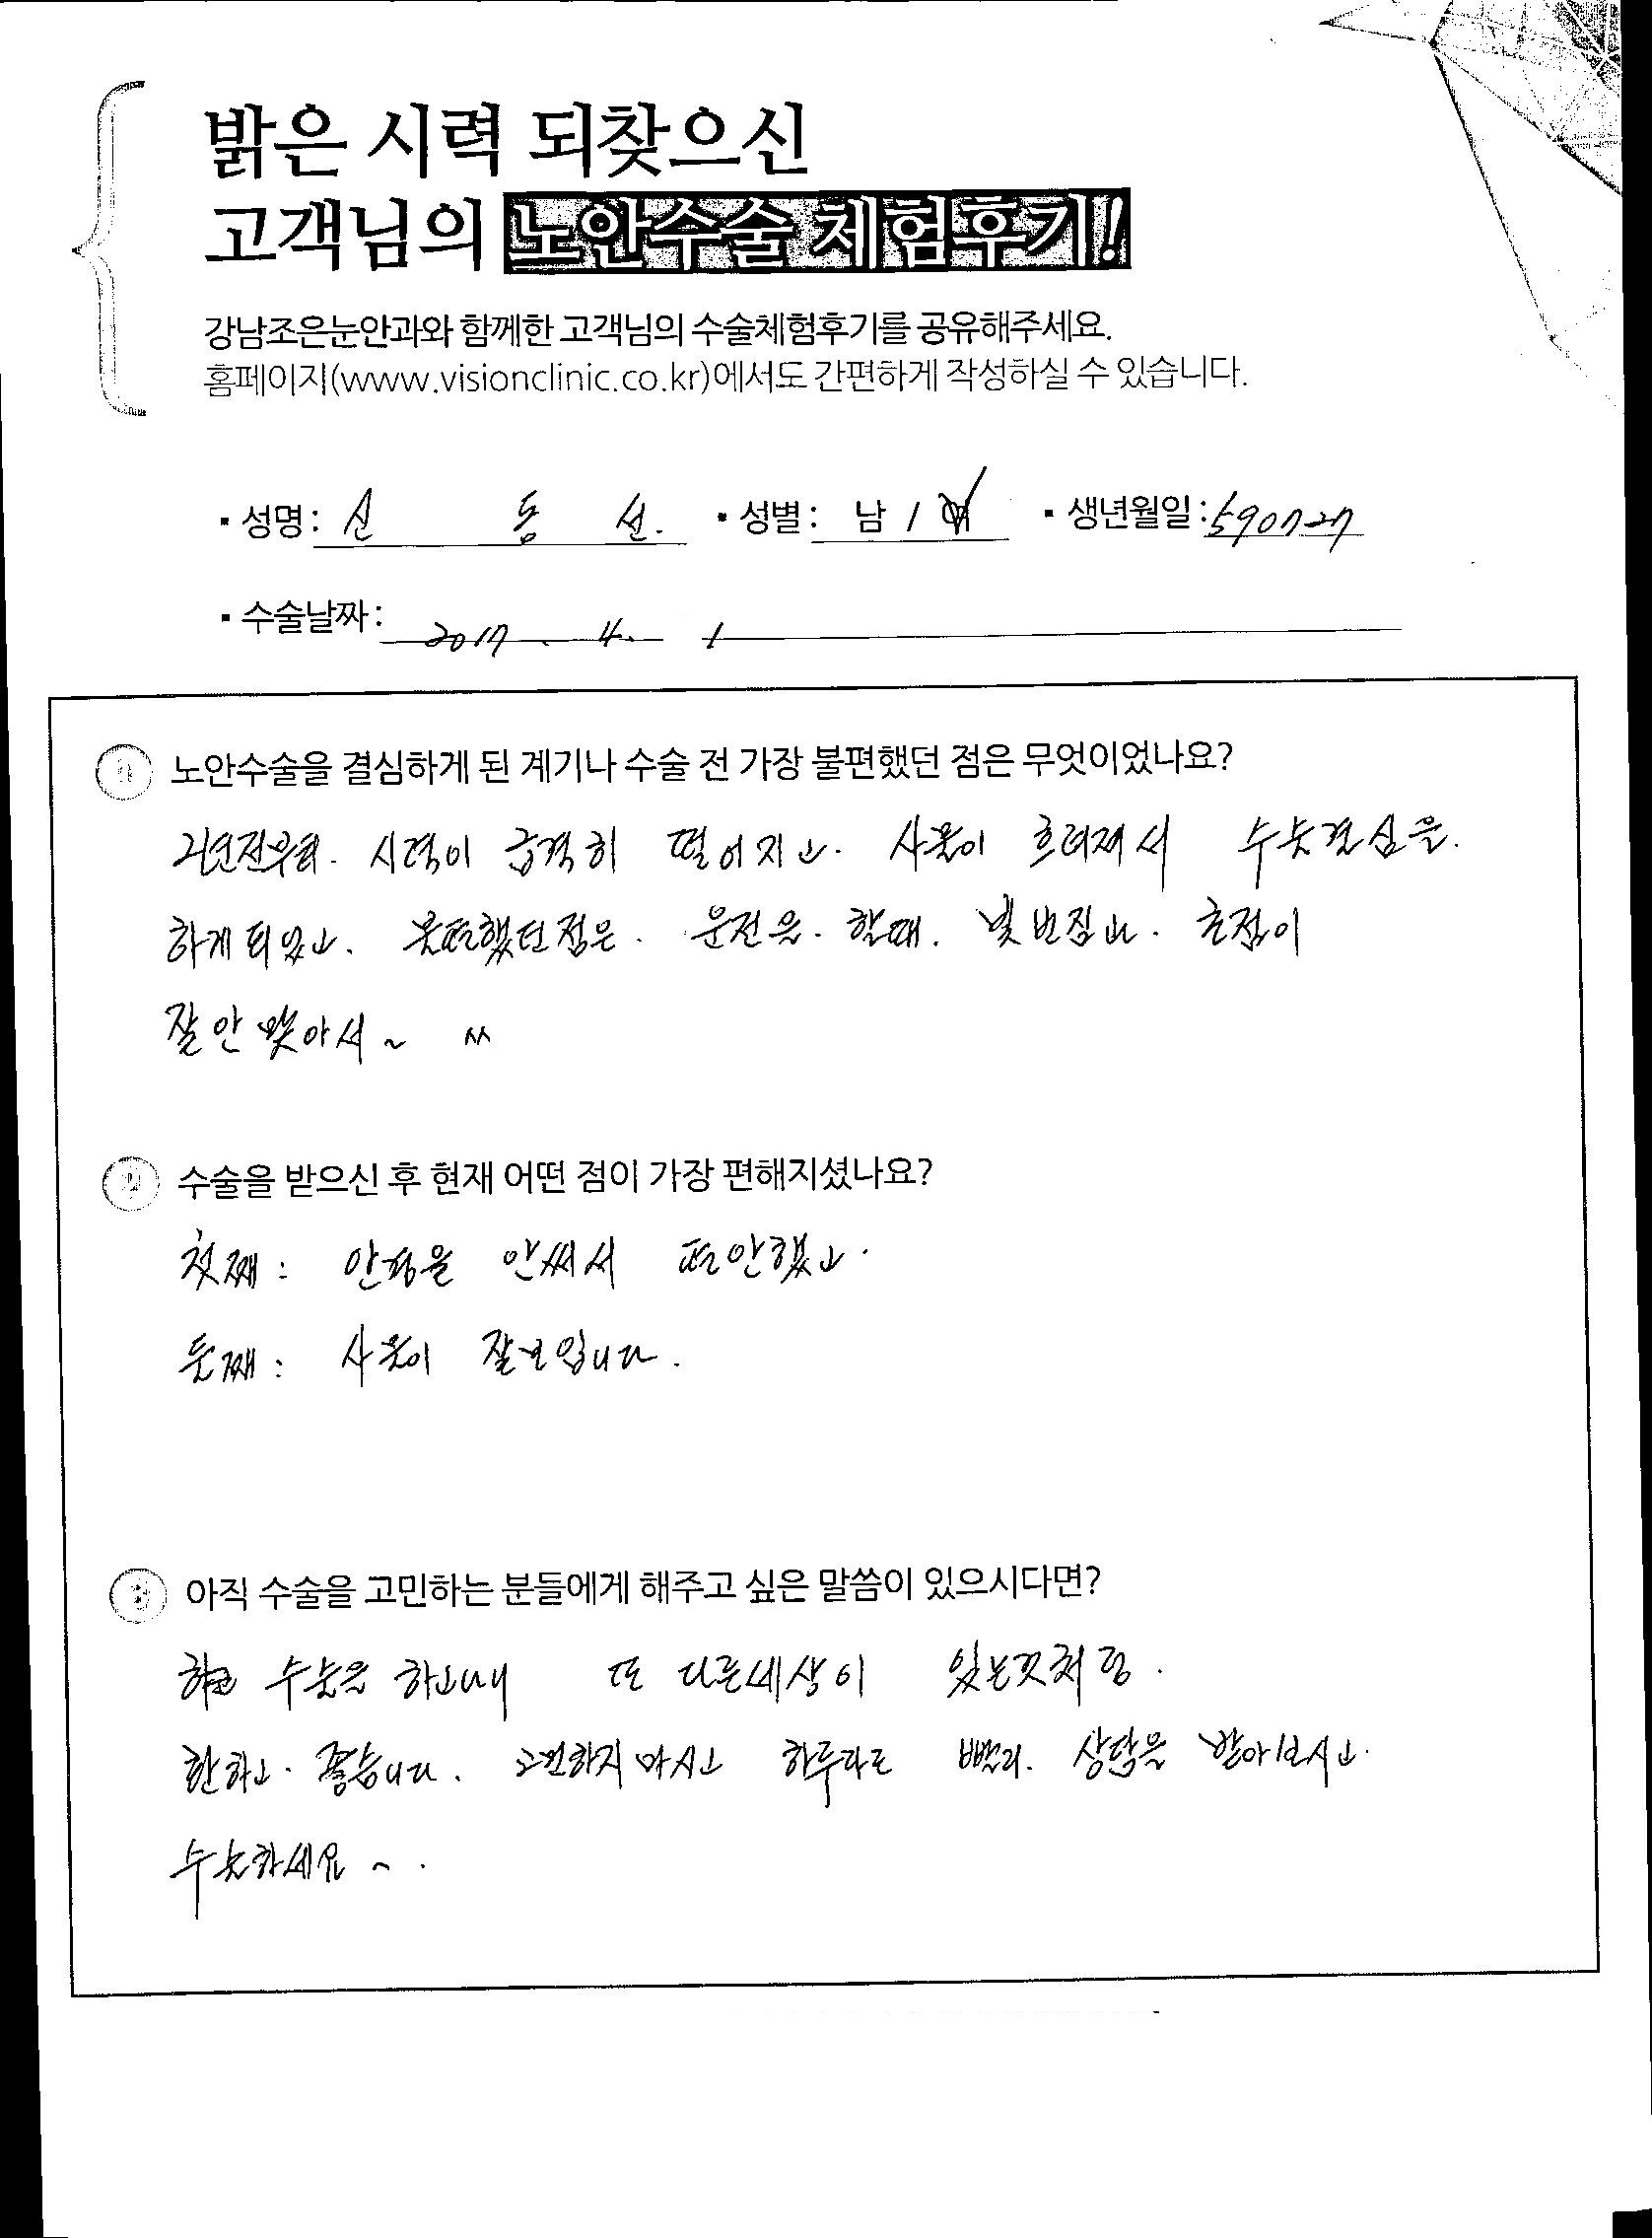 밝은 시력 되찾으신
고객님의 노안수술 체험후기!
강남조은눈안과와 함께한 고객님의 수술체험후기를 공유해주세요.
홈페이지(www.visionclinic.co.kr)에서도 간편하게 작성하실 수 있습니다.
▪ 성명: 신 동 선. ▪ 성별: 남 / 여 ▪ 생년월일: 590727
▪ 수술날짜: 2017. 4. 1
1 노안수술을 결심하게 된 계기나 수술 전 가장 불편했던 점은 무엇이었나요?
2년전우터. 시력이 급격히 떨어지고. 사물이 흐려져서 수술결심을.
하게되었고. 불편했던점은. 운전을. 할때. 빛번짐과. 초점이
잘안맞아서~ ^^
2 수술을 받으신 후 현재 어떤 점이 가장 편해지셨나요?
첫째: 안경을 안써서 편안했고.
둘째: 사물이 잘보입니다.
3 아직 수술을 고민하는 분들에게 해주고 싶은 말씀이 있으시다면?
수술을 하고나니 또 다른세상이 있는것처럼.
환하고. 좋습니다. 고민하지마시고 하루라도 빨리. 상담을 받아보시고.
수술하세요~.